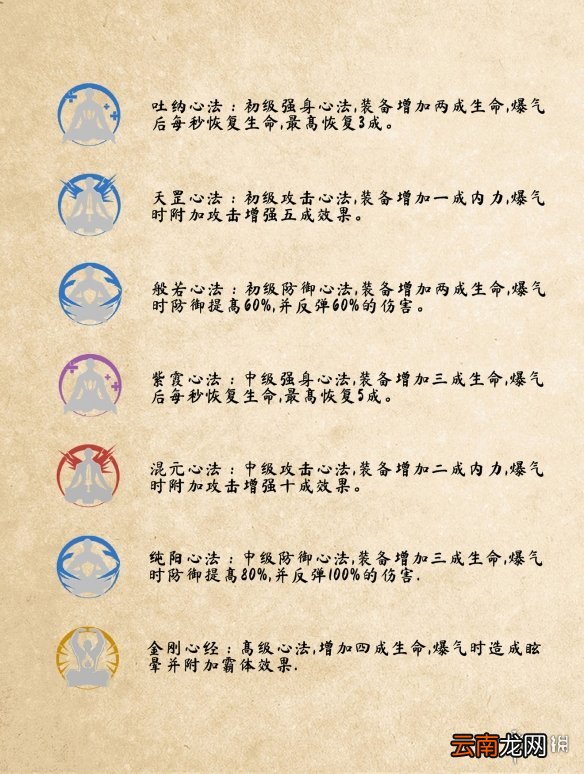 吐纳心法：初级强身心法,装备增加两成生命,爆气
后每秒恢复生命,最高恢复3成。
天罡心法：初级攻击心法,装备增加一成内力,爆气
时附加攻击增强五成效果。
般若心法：初级防御心法,装备增加两成生命,爆气
时防御提高60%,并反弹60%的伤害。
紫霞心法：中级强身心法,装备增加三成生命,爆气
后每秒恢复生命,最高恢复5成。
混元心法：中级攻击心法,装备增加二成内力,爆气
时附加攻击增强十成效果。
纯阳心法：中级防御心法,装备增加三成生命,爆气
时防御提高80%,并反弹100%的伤害.
金刚心经：高级心法,增加四成生命,爆气时造成眩
晕并附加霸体效果.
云南龙网